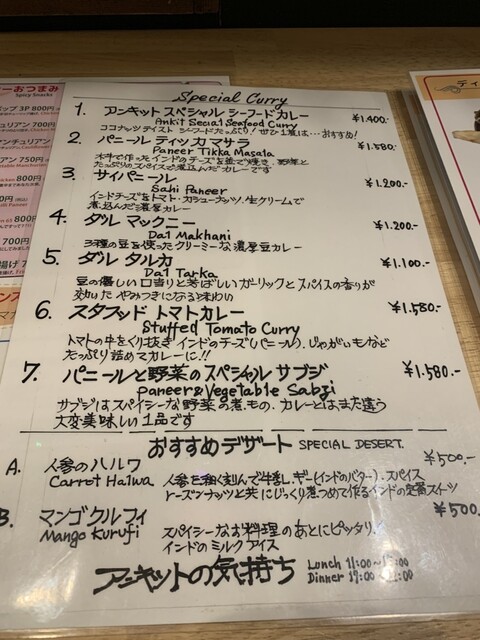 Special Curry
1. アンキット スペシャル シーフードカレー ¥1.400.-
Ankit Secial Seafood Curry
ココナッツテイスト シーフードたっぷり! ぜひ1度は… おすすめ!
2. パニール ティッカ マサラ ¥1.580.-
Paneer Tikka Masala
たっぷりのスパイスで煮込んだカレーです
3. サイパニール ¥1.200.-
Sahi Paneer
インドチーズをトマト・カシューナッツ、生クリームで
煮込んだ濃厚カレー
4. ダル マックニー ¥1.200.-
Dal Makhani
3種の豆を使ったクリーミーな濃厚豆カレー
5. ダル タルカ ¥1.100.-
Dal Tarka
豆の優しい口当りと芳ばしいガーリックとスパイスの香りが
効いた やみつきになる味わい
6. スタフッド トマトカレー ¥1.580.-
Stuffed Tomato Curry
トマトの中をくり抜き インドのチーズ(パニール)、じゃがいもなど
たっぷり詰めてカレーに!!
7. パニールと野菜のスペシャル サブジ ¥1.580.-
paneer&Vegetable Sabzi
サブジはスパイシーな野菜の煮もの、カレーとはまた違う
大変美味しい1品です
おすすめデザート SPECIAL DESERT.
A. 人参のハルワ ¥500.-
Carret Halwa
人参を細く刻んで牛乳、ギー(インドのバター)、スパイス
レーズンナッツと共にじっくり煮つめて作るインドの定番スイーツ
B. マンゴクルフィ ¥500.
Mango Kurufi
スパイシーなお料理のあとにピッタリ、
インドのミルクアイス
アンキットの気持ち
Lunch 11:00~
Dinner 17:00~